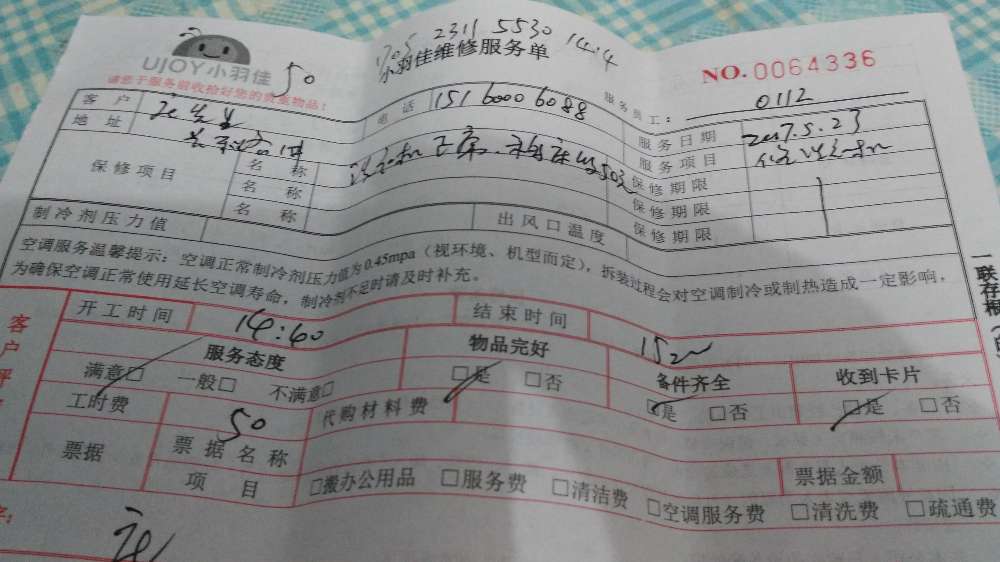 2311 5530 14:4
UJOY小羽佳
50
小羽佳维修服务单
请您于服务前收拾好您的贵重物品!
NO.0064336
服务员工: 0112
客户
电话 151 6000 6088
服务日期 2017.5.23
地址
服务项目
保修项目
名称
保修期限
名称
保修期限
名称
保修期限
制冷剂压力值
出风口温度
空调服务温馨提示:空调正常制冷剂压力值为0.45mpa(视环境、机型而定),拆装过程会对空调制冷或制热造成一定影响,
为确保空调正常使用延长空调寿命,制冷剂不足时请及时补充。
一联存根
开工时间 14:40
结束时间
服务态度
物品完好
备件齐全
收到卡片
满意□ 一般□ 不满意□
□是 □否
□是 □否
□是 □否
工时费 50
代购材料费
票据
票据名称
票据金额
项目
□搬办公用品 □服务费 □清洁费 □空调服务费 □清洗费 □疏通费